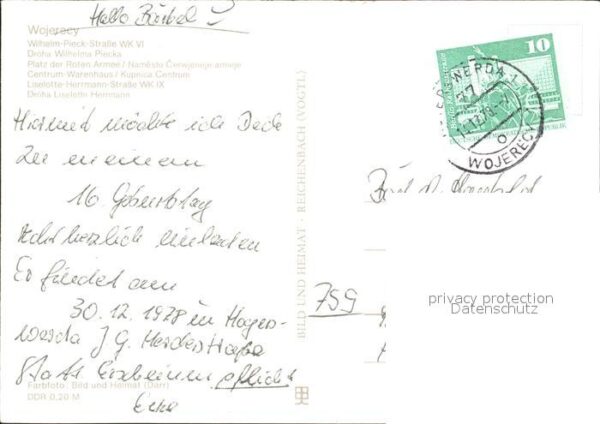 Hallo Bärbel
Wojerecy
Wilhelm-Pieck-Straße WK VI
Dróha Wilhelma Piecka
Platz der Roten Armee / Naměsto Čerwjeneje armeje
Centrum-Warenhaus / Kupnica Centrum
Liselotte-Herrmann-Straße WK IX
Dróha Liselotte Herrmann
Hiermit möchte ich Dich
zu meinem
16. Geburtstag
recht herzlich einladen
Er findet am
30. 12. 1978 in Hoyers-
werda J. G. Herderstraße
statt. Erscheinen pflicht
Farbfoto: Bild und Heimat (Darr)
DDR 0,20 M
BILD UND HEIMAT · REICHENBACH (VOGTL)
10
WOJERECY
759
privacy protection
Datenschutz